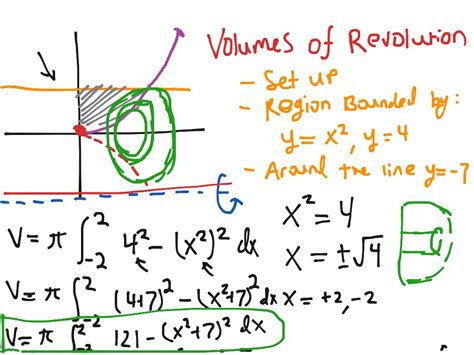 Volumes of Revolution
- Set up
- Region Bounded by:
y = x², y = 4
- Around the line y=-7
x² = 4
x = ±√4
x = +2, -2
V = π ∫₋₂² 4² - (x²)² dx
V = π ∫₋₂² (4+7)² - (x²+7)² dx
V = π ∫₋₂² 121 - (x²+7)² dx